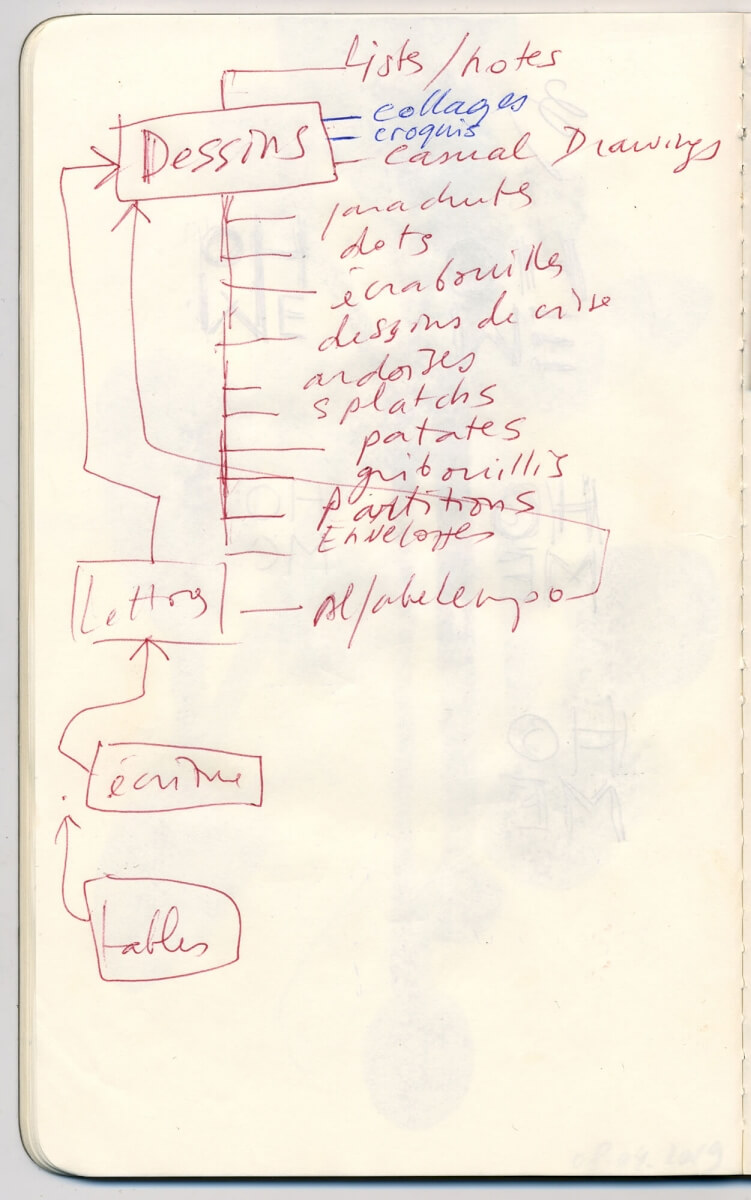 Lists/notes
collages
Dessins
croquis
Casual Drawings
parachutes
dots
écrabouilles
dessins de crise
ardoises
splatchs
patates
gribouillis
Partitions
Enveloppes
Lettres
écriture
tables